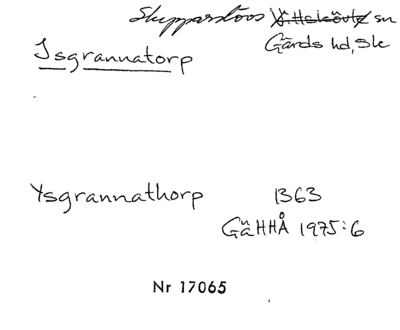 Skepparslöv V. Hlslövtz sn
Gärds hd, Sk
Isgrannatorp
Ysgrannathorp 1363
GäHHÅ 1975:6
Nr 17065